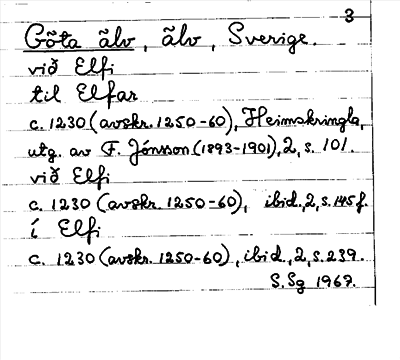 3
Göta älv, älv, Sverige.
við Elfi
til Elfar
c. 1230 (avskr. 1250-60), Heimskringla,
utg. av F. Jónsson (1893-1901), 2, s. 101.
við Elfi
c. 1230 (avskr. 1250-60), ibid., 2, s. 145 f.
í Elfi
c. 1230 (avskr. 1250-60), ibid., 2, s. 239.
S. Sg 1967.